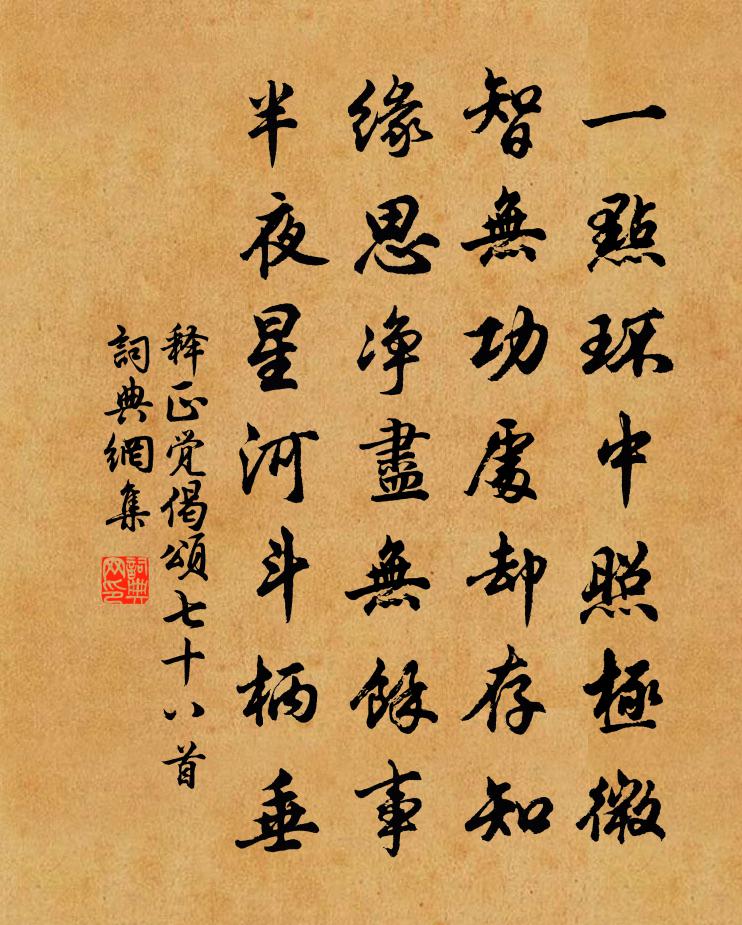 一點環中照極微
智無功處却存知
緣思净盡無餘事
半夜星河斗柄垂
释正觉偈頌七十八首
詞典網集
詞典網印